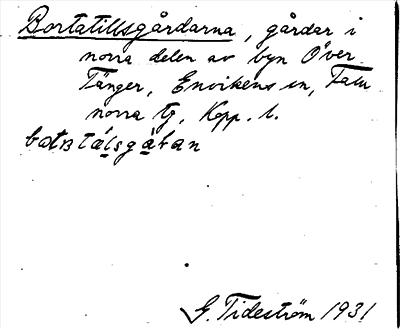 Bortatillsgårdarna, gårdar i
norra delen av byn Över
Tänger, Envikens sn, Falu
norra tg, Kopp. l.
G. Tideström 1931